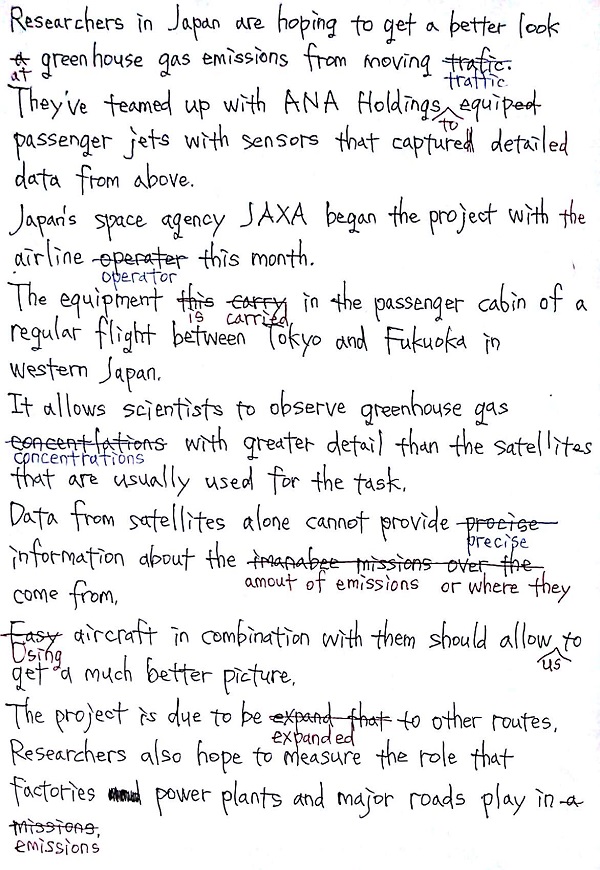 Researchers in Japan are hoping to get a better look
a greenhouse gas emissions from moving trafic.
at traffic
They've teamed up with ANA Holdings equiped
to
passenger jets with sensors that captured detailed
data from above.
Japan's space agency JAXA began the project with the
airline operater this month.
operator
The equipment this carry in the passenger cabin of a
is carried
regular flight between Tokyo and Fukuoka in
western Japan.
It allows scientists to observe greenhouse gas
with greater detail than the satellites
concentrations
that are usually used for the task.
Data from satellites alone cannot provide procise
precise
information about the imanabee missions over the
amout of emissions or where they
come from.
Easy aircraft in combination with them should allow to
Using us
get a much better picture.
The project is due to be expand that to other routes.
expanded
Researchers also hope to measure the role that
factories power plants and major roads play in a
missions.
emissions